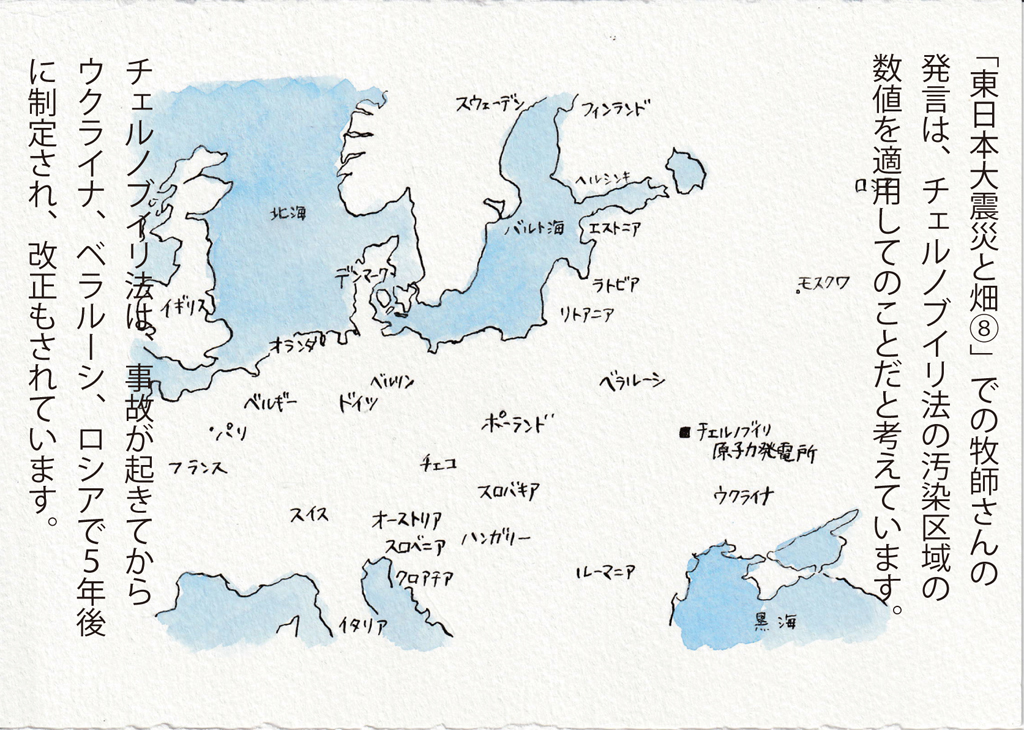 「東日本大震災と畑⑧」での牧師さんの
発言は、チェルノブイリ法の汚染区域の
数値を適用してのことだと考えています。
スウェーデン
フィンランド
ヘルシンキ
北海
バルト海
エストニア
デンマーク
ラトビア
モスクワ
イギリス
リトアニア
オランダ
ベルリン
ベラルーシ
ベルギー
ドイツ
ポーランド
パリ
チェルノブイリ
原子力発電所
フランス
チェコ
スロバキア
ウクライナ
スイス
オーストリア
ハンガリー
スロベニア
クロアチア
ルーマニア
イタリア
黒海
チェルノブイリ法は、事故が起きてから
ウクライナ、ベラルーシ、ロシアで5年後
に制定され、改正もされています。